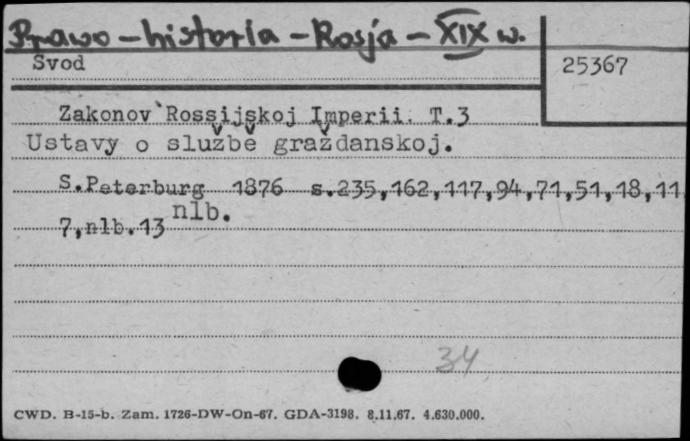 Prawo – historia – Rosja – XIX w.
Svod
25367
Zakonov Rossijskoj Imperii. T.3
Ustavy o službě graždanskoj.
S.Peterburg 1876 s.235,162,117,94,71,51,18,11
7,nlb.13 nlb.
34
CWD. B-15-b. Zam. 1726-DW-On-67. GDA-3198. 8.11.67. 4.630.000.